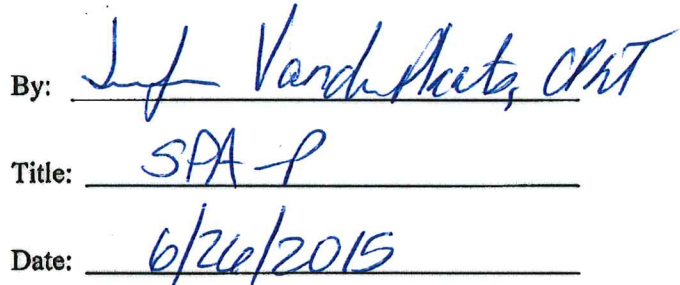 By: Vander Plaats, CPhT
Title: SPA-P
Date: 6/26/2015